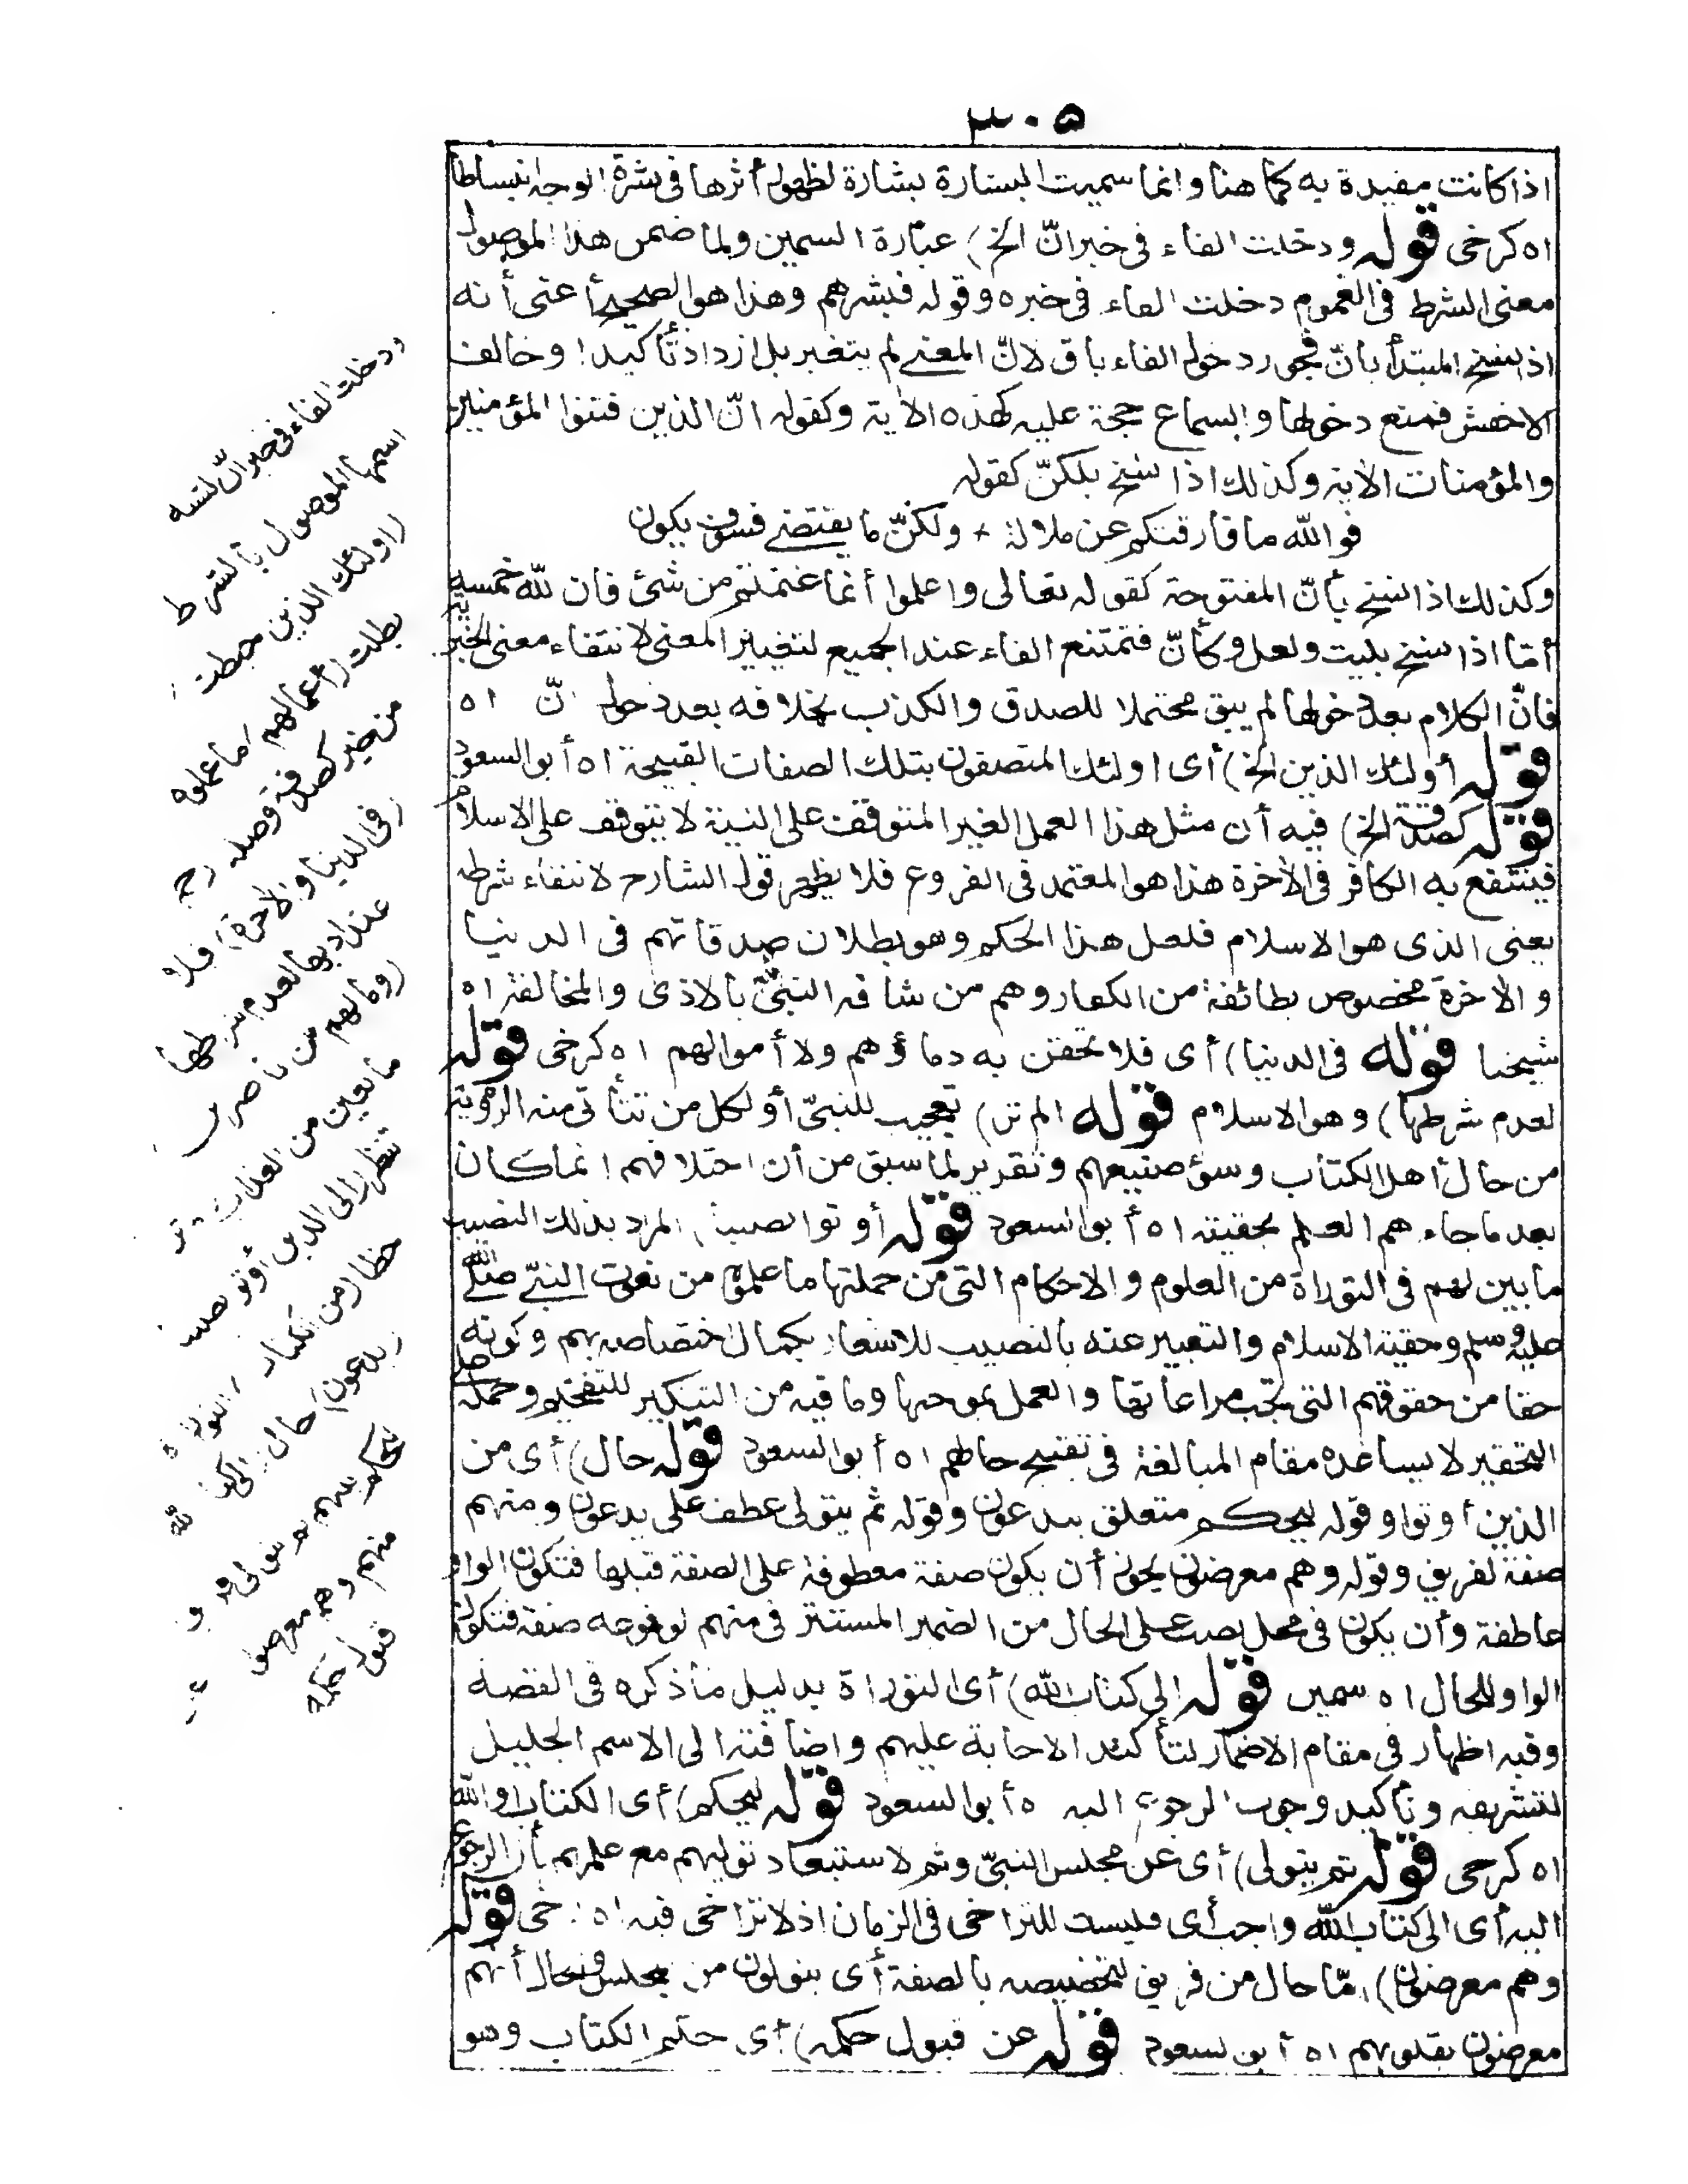 ٣٠٥
اذا كانت مقيدة به كما هنا وانما سميت البشارة بشارة لظهور أثرها فى بشرة الوجه انبساطا
اه كرخى قوله ودخلت الفاء فى خبر انّ الخ) عبارة السمين ولما ضمن هذا الموصول
معنى الشرط فى العموم دخلت الفاء فى خبره وقوله فبشرهم وهذا هو الصحيح أعنى أنه
اذا نسخ المبتدأ بانّ فجور دخول الفاء باق لانّ المعنى لم يتغير بل ازداد تأكيدا وخالف
الاخفش فمنع دخولها والسماع حجة عليه كهذه الاٰية وكقوله انّ الذين فتنوا المؤمنين
والمؤمنات الاٰية وكذلك اذا نسخ بلكنّ كقوله
فوالله ما فارقتكم عن ملالة + ولكنّ ما يقتضى فسوف يكون
وكذلك اذا نسخ بأنّ المفتوحة كقوله تعالى واعلموا أنما غنمتم من شئ فان لله خمسه
أمّا اذا نسخ بليت ولعل وكأنّ فتمتنع الفاء عند الجميع لتغيير المعنى لانتفاء معنى الخبرية
فانّ الكلام بعد دخولها لم يبق محتملا للصدق والكذب بخلافه بعد دخول انّ اه
قوله أولئك الذين الخ) أى اولئك المتصفون بتلك الصفات القبيحة اه أبو السعود
قوله كصدقة الخ) فيه أن مثل هذا العمل الغير المتوقف على النية لا يتوقف على الاسلام
فينتفع به الكافر فى الاٰخرة هذا هو المعتمد فى الفروع فلا يظهر قول الشارح لانتفاء شرطه
يعنى الذى هو الاسلام فلعل هذا الحكم وهو بطلان صدقاتهم فى الدنيا
والاٰخرة مخصوص بطائفة من الكفار وهم من شافه النبىّ بالاذى والمخالفة اه
شيخنا قوله فى الدنيا) أى فلا تحقن به دماؤهم ولا أموالهم اه كرخى قوله
لعدم شرطها) وهو الاسلام قوله الم تر) تعجيب للنبىّ أو لكل من تتأتى منه الرؤية
من حال أهل الكتاب وسؤ صنيعهم وتقرير لما سبق من أن اختلافهم انما كان
بعد ما جاءهم العلم بحقيته اه أبو السعود قوله أوتوا نصيبا) المراد بذلك النصيب
ما بين لهم فى التوراة من العلوم والاحكام التى من جملتها ما علموه من نعوت النبىّ صلى الله
عليه وسلم وحقية الاسلام والتعبير عنه بالنصيب للاشعار بكمال اختصاصه بهم وكونه
حقا من حقوقهم التى تجب مراعاتها والعمل بموجبها وما فيه من التنكير للتفخيم وحمله على
التحقير لا يساعده مقام المبالغة فى تقبيح حالهم اه أبو السعود قوله حال) أى من
الذين أوتوا وقوله ليحكم متعلق بيدعون وقوله ثم يتولى عطف على يدعون ومنهم
صفة لفريق وقوله وهم معرضون يجوز أن يكون صفة معطوفة على الصفة قبلها فتكون الواو
عاطفة وأن يكون فى محل نصب على الحال من الضمير المستتر فى منهم لوقوعه صفة فتكون
الواو للحال اه سمين قوله الى كتاب الله) أى التوراة بدليل ما ذكره فى القصة
وفيه اظهار فى مقام الاضمار لتأكيد الاجابة عليهم واضافته الى الاسم الجليل
لتشريفه وتأكيد وجوب الرجوع اليه اه أبو السعود قوله ليحكم) أى الكتاب او الله
اه كرخى قوله ثم يتولى) أى عن مجلس النبىّ وثم لاستبعاد توليهم مع علمهم بأن الرجوع
اليه أى الى كتاب الله واجب أى فليست للتراخى فى الزمان اذ لا تراخى فيه اه كرخى قوله
وهم معرضون) امّا حال من فريق لتخصيصه بالصفة أى يتولون من مجلس وحال أنهم
معرضون بقلوبهم اه أبو السعود قوله عن قبول حكمه) أى حكم الكتاب وهو
ودخلت الفاء فى خبر انّ لشبه
اسمها الموصول بالشرط
(اولئك الذين حبطت)
بطلت (أعمالهم) ما عملوه
من خير كصدقة وصلة رحم
(فى الدنيا والاٰخرة) فلا
اعتداد بها لعدم شرطها
(وما لهم من ناصرين)
مانعين من العذاب (ألم تر)
تنظر (الى الذين أوتوا نصيبا)
حظا (من الكتاب) التوراة
(يدعون) حال (الى كتاب الله
ليحكم بينهم ثم يتولى فريق
منهم وهم معرضون) عن
قبول حكمه